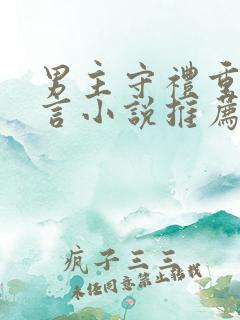 男主守禮重
言小說推薦
疯子三三
未经同意禁止转载